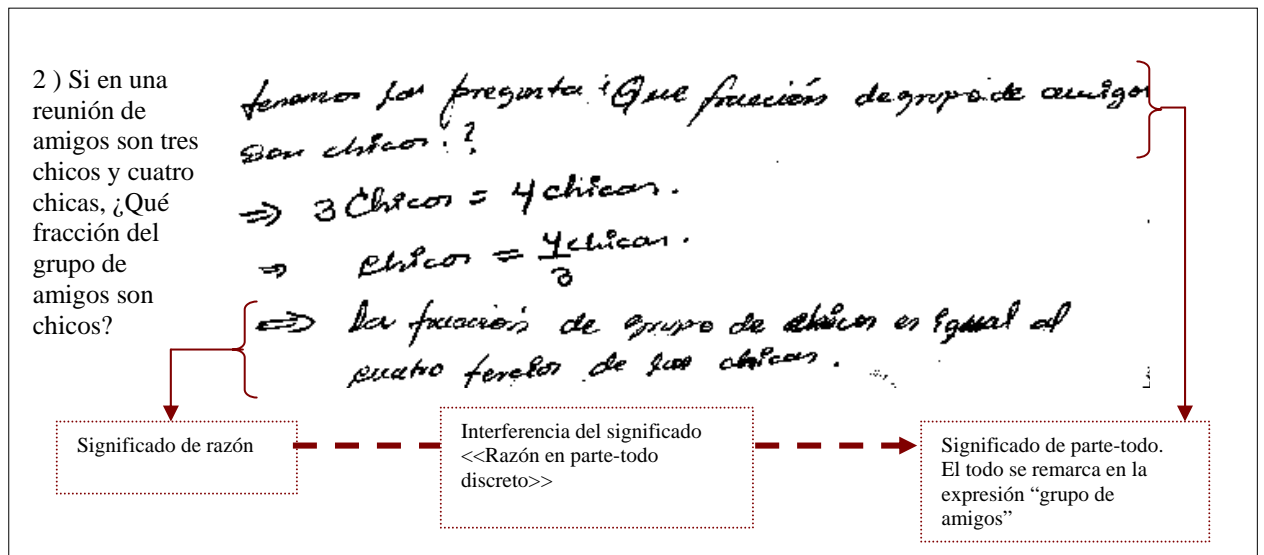 2 ) Si en una
reunión de
amigos son tres
chicos y cuatro
chicas, ¿Qué
fracción del
grupo de
amigos son
chicos?
tenemos las pregunta ¿Que fracción de grupo de amigos
son chicos.?
⇒ 3 Chicos = 4 chicas.
⇒ chicos = 4 chicas.
3
⇒ La fracción de grupo de chicos es igual al
cuatro tercios de las chicas.
Significado de razón
Interferencia del significado
<<Razón en parte-todo
discreto>>
Significado de parte-todo.
El todo se remarca en la
expresión “grupo de
amigos”